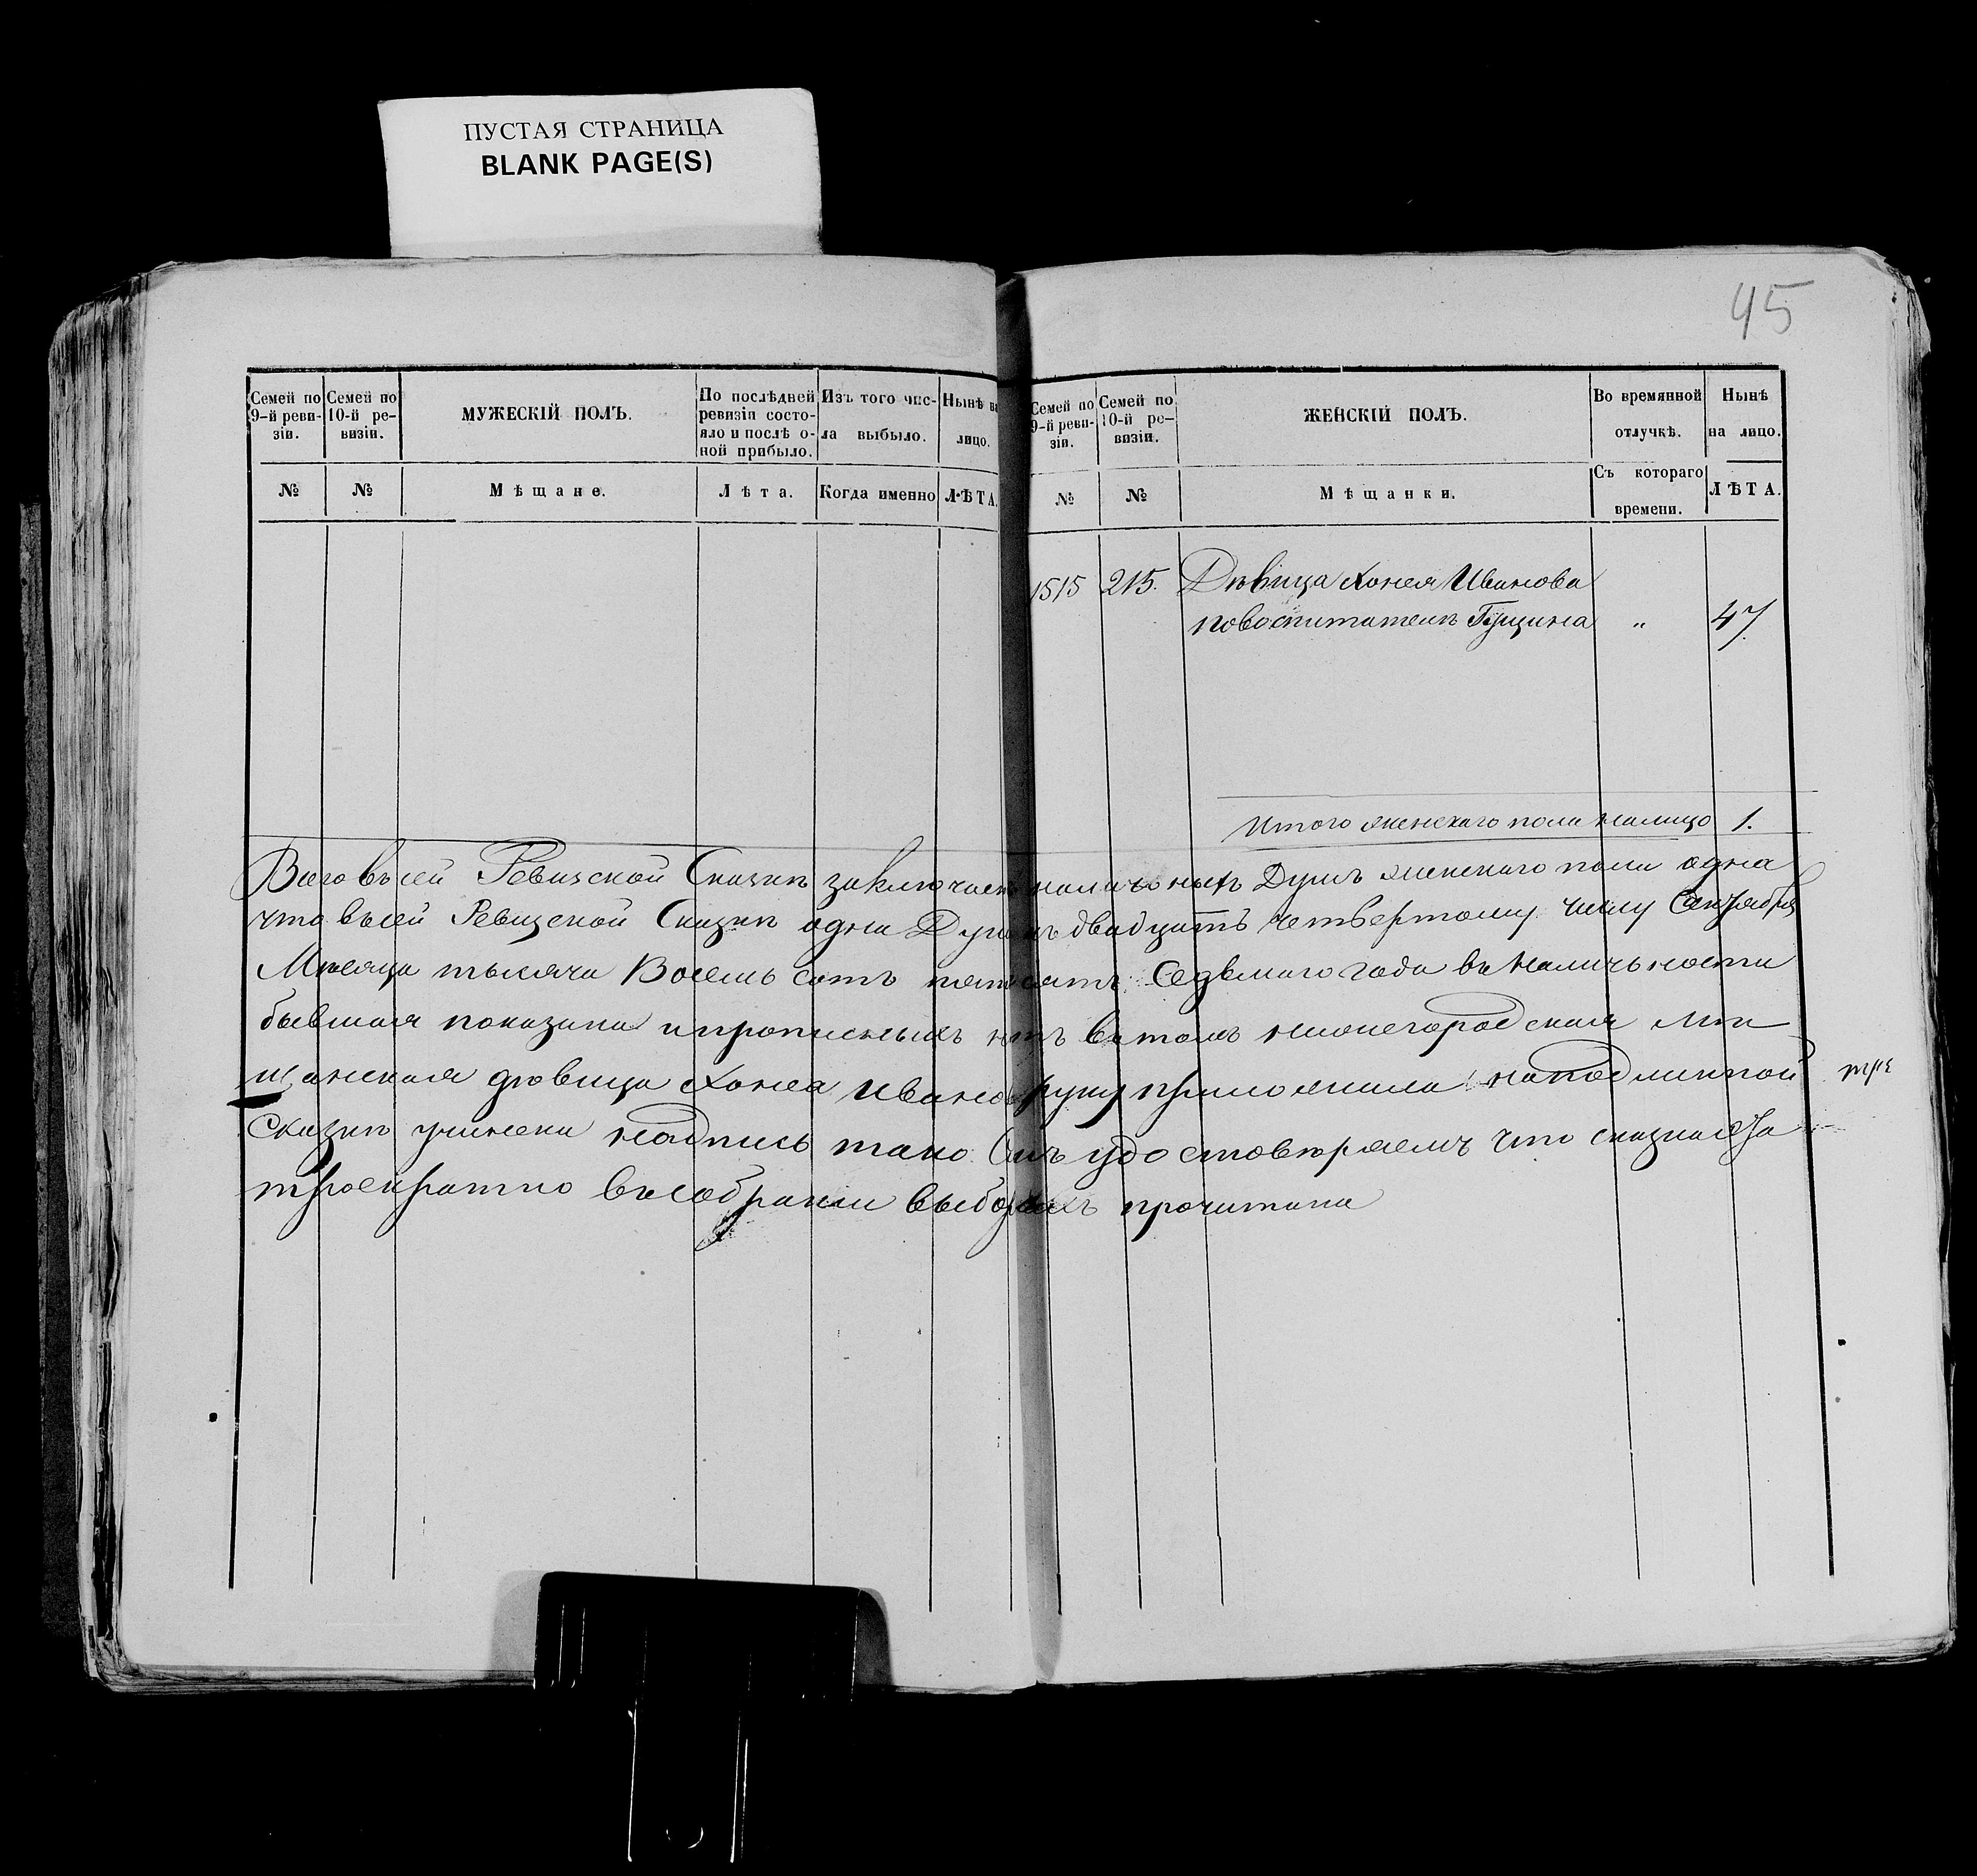 ПУСТАЯ СТРАНИЦА
BLANK PAGE(S)
45
Семей по 9-й реви-зіи.
Семей по 10-й ре-визіи.
МУЖЕСКІЙ ПОЛЪ.
По послѣдней ревизіи состо-яло и послѣ о-ной прибыло.
Изъ того чис-ла выбыло.
Нынѣ на лицо.
№
№
Мѣщане.
Лѣта.
Когда именно
ЛѢТА.
Семей по 9-й реви-зіи.
Семей по 10-й ре-визіи.
ЖЕНСКІЙ ПОЛЪ.
Во времянной отлучкѣ.
Нынѣ на лицо.
№
№
Мѣщанки.
Съ котораго времени.
ЛѢТА.
1515 215. Дѣвица Хонея Иванова
повоспитателѣ Гущина " 47
Итого женскаго пола налицо 1.
Всего всей Ревизской Сказкѣ заключается наличныхъ Душъ женскаго пола одна
что всей Ревизской Сказкѣ одна Душа къ двадцать четвертому числу Сентября
Мѣсяца тысяча Восемь сотъ пятьдесятъ Седьмаго года въ Наличьности
бывшая показана и прописныхъ нѣтъ въ томъ нижнегородская мѣ
щанская дѣвица Хонея Иванова руку приложила наподлинной
Сказкѣ учинена надпись тако Симъ удостовѣряемъ что сказка сѣя
троекратно въ собраніи выборныхъ прочитана